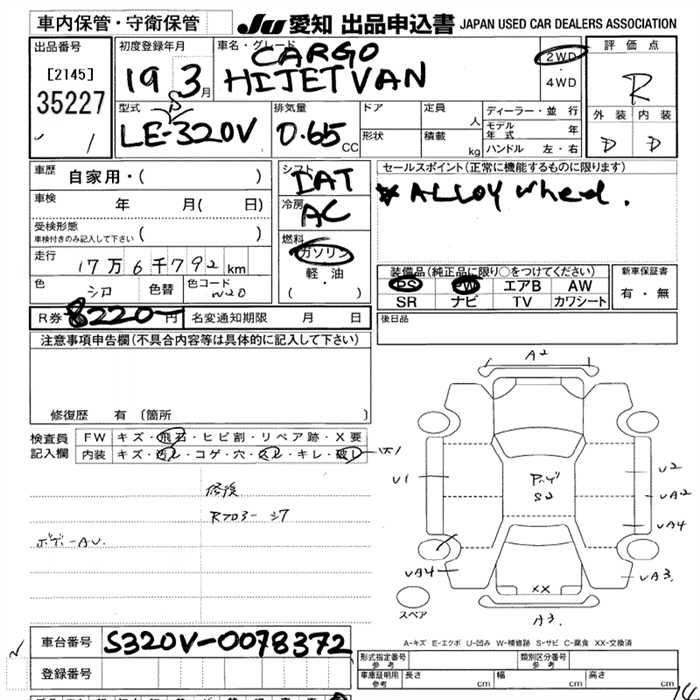 車内保管・守衛保管
JU 愛知 出品申込書 JAPAN USED CAR DEALERS ASSOCIATION
出品番号
[2145]
35227
初度登録年月
19 5 3月
車名・グレード
CARGO
HIJET VAN
2WD
・
4WD
評価点
R
外装 内装
D D
型式
LE-S320V
排気量
0.65 CC
ドア
形状
定員 人
積載 kg
ディーラー・並行
モデル年式 年
ハンドル 左・右
車歴 自家用・( )
車検 年 月( 日)
受検形態
車検付きのみ記入して下さい ( )
走行 17万6千792km
色 シロ 色替 色コード W20
シフト
IAT
冷房
AC
燃料
ガソリン
軽・油
( ・ )
セールスポイント(正常に機能するものに限ります)
* ALLOY wheel.
装備品(純正品に限り○をつけてください)
PS PW エアB AW
SR ナビ TV カワシート
新車保証書
有・無
R券 8220- 円 名変通知期限 月 日
後日品
注意事項申告欄(不具合内容等は具体的に記入して下さい)
修復歴 有 〔箇所 〕
検査員
記入欄
FW キズ・飛石・ヒビ割・リペア跡・X要
内装 キズ・汚レ・コゲ・穴・スレ・キレ・破レ
修復
ボデーAU.
A2
U1
U2
UA2
UA4
UA4
UA3
S2
XX
A3
スペア
A-キズ E-エクボ U-凹み W-補修跡 S-サビ C-腐食 XX-交換済
車台番号 S320V-0078372
登録番号
形式指定番号 参考
類別区分番号 参考
車庫証明用 参考
長さ cm 幅 cm 高さ cm